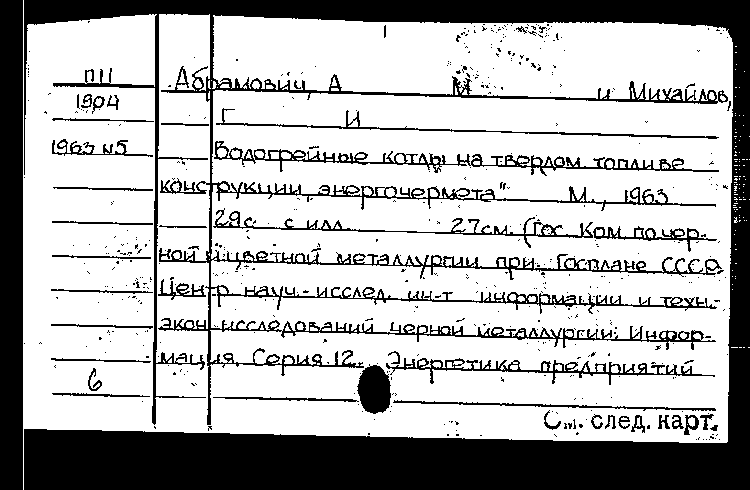 ПП Абрамович, А М и Михайлов,
1904 Г И
1963 №5 Водогрейные котлы на твердом топливе
конструкции „энергочермета" М., 1963
29с с илл. 27см. (Гос. Ком. по чер-
ной и цветной металлургии при. Госплане СССР.
Центр науч.-исслед. ин-т информации и техн.-
экон исследований черной металлургии. Инфор-
мация. Серия.12. Энергетика предприятий
6
См. след. карт.